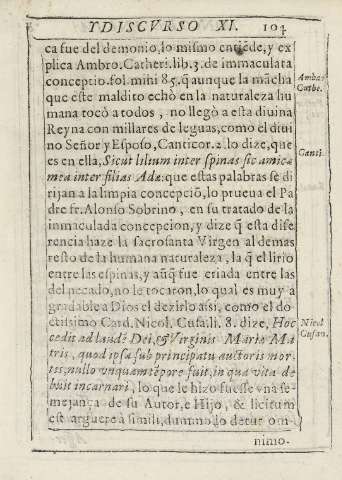 Y DISCVRSO XI. 103
ca fue del demonio, lo mismo entiẽde, y ex
plica Ambro. Catheri. lib. 3. de immaculata
conceptio. fol. mihi 85. q̃ aunque la mãcha
que este maldito echò en la naturaleza hu
mana tocò a todos, no llegò a esta diuina
Reyna con millares de leguas, como el diui
no Señor y Esposo, Canticor. 2. lo dize, que
es en ella, Sicut lilium inter spinas sic amica
mea inter filias Adæ: que estas palabras se di
rijan a la limpia concepciõ, lo prueua el Pa
dre fr. Alonso Sobrino, en su tratado de la
inmaculada concepcion, y dize q̃ esta dife
rencia haze la sacrosanta Virgen al demas
resto de la humana naturaleza, la q̃ el lirio
entre las espinas, y aũq̃ fue criada entre las
del pecado, no le tocaron, lo qual es muy a
gradable a Dios el dezirlo assi, como el do
ctissimo Card. Nicol. Cusa. li. 8. dize, Hoc
cedit ad laudẽ Dei, & Virginis Mariæ Ma
tris, quod ipsa sub principatu auctoris mor
tis, nullo vnquam tẽpore fuit, in qua vita de
buit incarnari, lo que le hizo fuesse vna se-
mejança de su Autor, e Hijo, & licitum
est arguere à simili, dummodo detur om-
nimo-
Ambr.
Cathe.
Canti.
Nicol
Cusan.